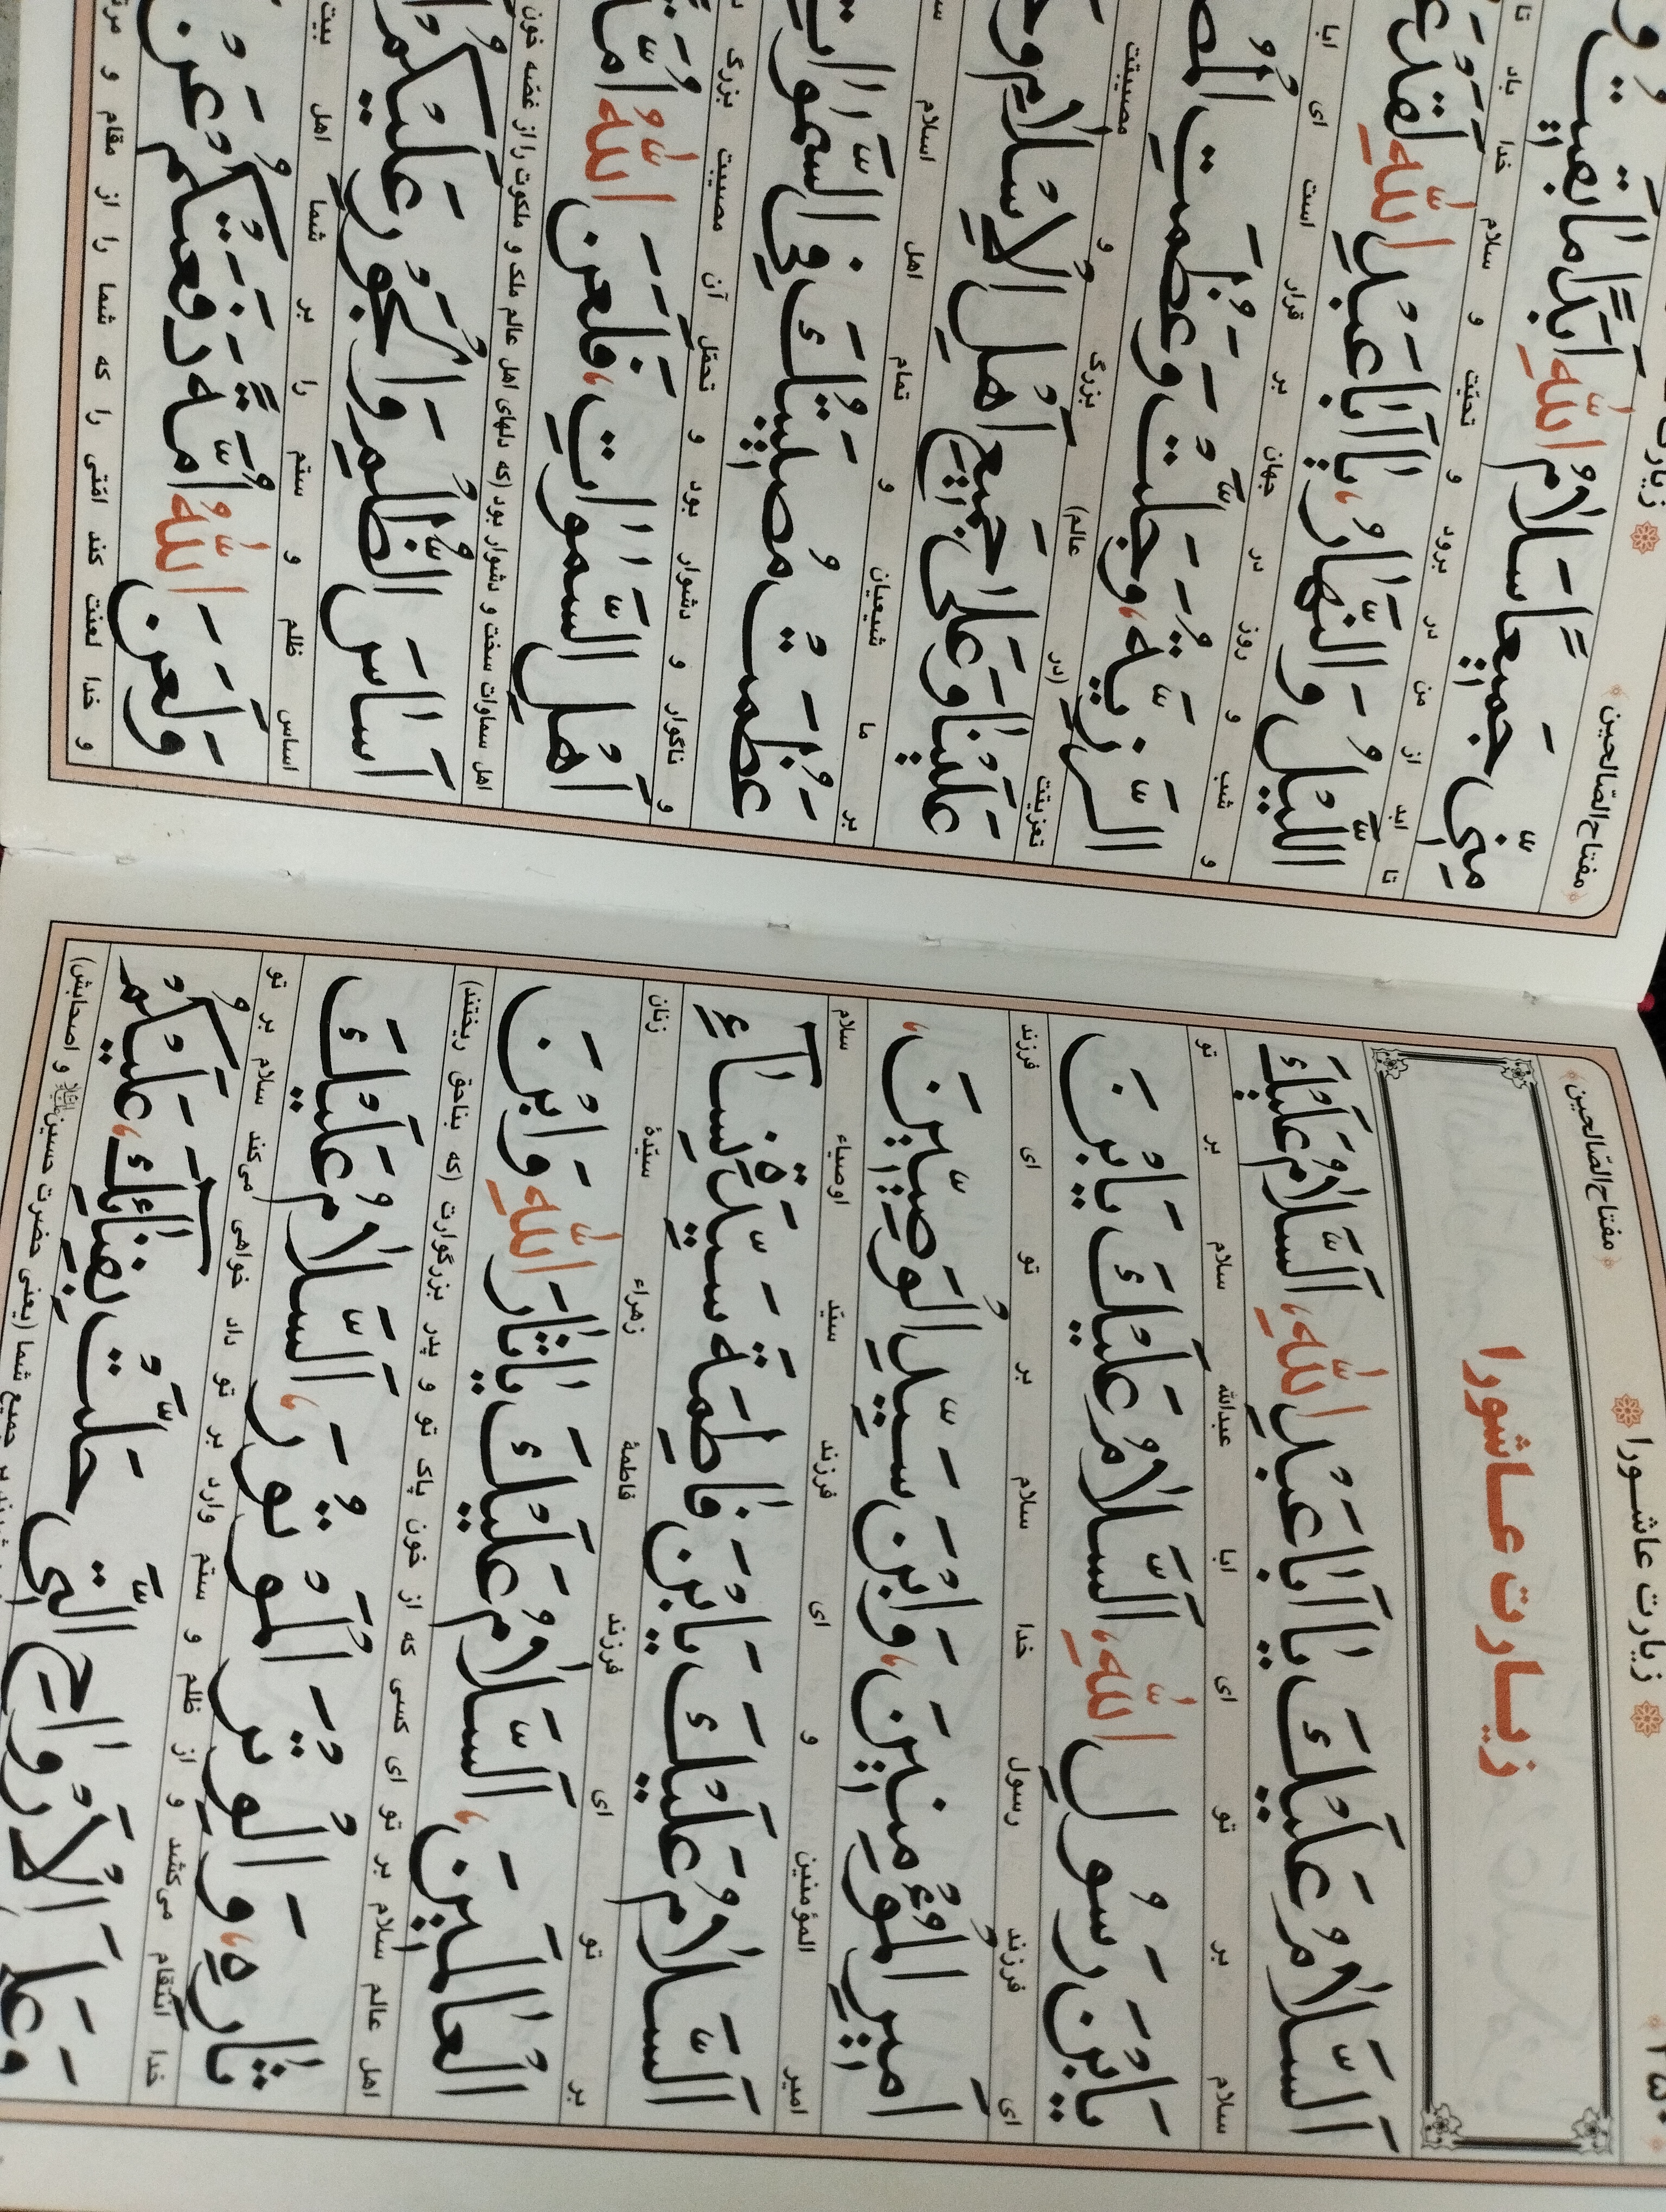 ۲۵۰ زیارت عاشورا ﴿مفتاح‌الصّالحین﴾
زیارت عاشورا
اَلسَّلامُ عَلَيْكَ يا اَبا عَبْدِ اللّٰهِ، اَلسَّلامُ عَلَيْكَ
سلام بر تو ای ابا عبدالله سلام بر تو
يَابْنَ رَسُولِ اللّٰهِ، اَلسَّلامُ عَلَيْكَ يَابْنَ
ای فرزند رسول خدا سلام بر تو ای فرزند
اَميرِ الْمُؤْمِنينَ، وَابْنَ سَيِّدِ الْوَصِيّينَ،
امیر المؤمنین و ای فرزند سیّد اوصیاء سلام
اَلسَّلامُ عَلَيْكَ يَابْنَ فاطِمَةَ سَيِّدَةِ نِسآءِ
بر تو ای فرزند فاطمهٔ زهراء سیّدهٔ زنان
الْعالَمينَ، اَلسَّلامُ عَلَيْكَ يا ثارَ اللّٰهِ وَابْنَ
اهل عالم سلام بر تو ای کسی که از خون پاک تو و پدر بزرگوارت (که بناحق ریختند)
ثارِهِ، وَالْوِتْرَ الْمَوْتُورَ، اَلسَّلامُ عَلَيْكَ
خدا انتقام می‌کشد و از ظلم و ستم وارد بر تو داد خواهی می‌کند سلام بر تو
وَعَلَى الْاَرْواحِ الَّتى حَلَّتْ بِفِنآئِكَ، عَلَيْكُمْ
جمیع شما (یعنی حضرت حسین و اصحابش)
﴿مفتاح‌الصّالحین﴾ زیارت
مِنّى جَميعًا سَلامُ اللّٰهِ اَبَدًا ما بَقيتُ وَ
تا ابد از من در برود و تحیّت و سلام خدا باد تا
اللَّيْلُ وَالنَّهارُ، يا اَبا عَبْدِ اللّٰهِ لَقَدْ
و شب و روز در جهان بر قرار است ای ابا
الرَّزِيَّةُ، وَجَلَّتْ وَعَظُمَتِ
تعزیتت (در عالم) بزرگ و مصیبتت
عَلَيْنا وَعَلى جَميعِ اَهْلِ الْاِسْلامِ
بر ما شیعیان و تمام اهل اسلام
عَظُمَتْ مُصيبَتُكَ فِى السَّمواتِ
و ناگوار و دشوار بود و تحمّل آن مصیبت بزرگ
اَهْلِ السَّمواتِ، فَلَعَنَ اللّٰهُ اُمَّةً
اهل سماوات سخت و دشوار بود (که دلهای اهل عالم ملک و ملکوت را از غصّه خون
اَساسَ الظُّلْمِ وَالْجَوْرِ عَلَيْكُمْ
اساس ظلم و ستم را بر شما اهل بیت
وَلَعَنَ اللّٰهُ اُمَّةً دَفَعَتْكُمْ عَنْ
و خدا لعنت کند امّتی را که شما را از مقام و